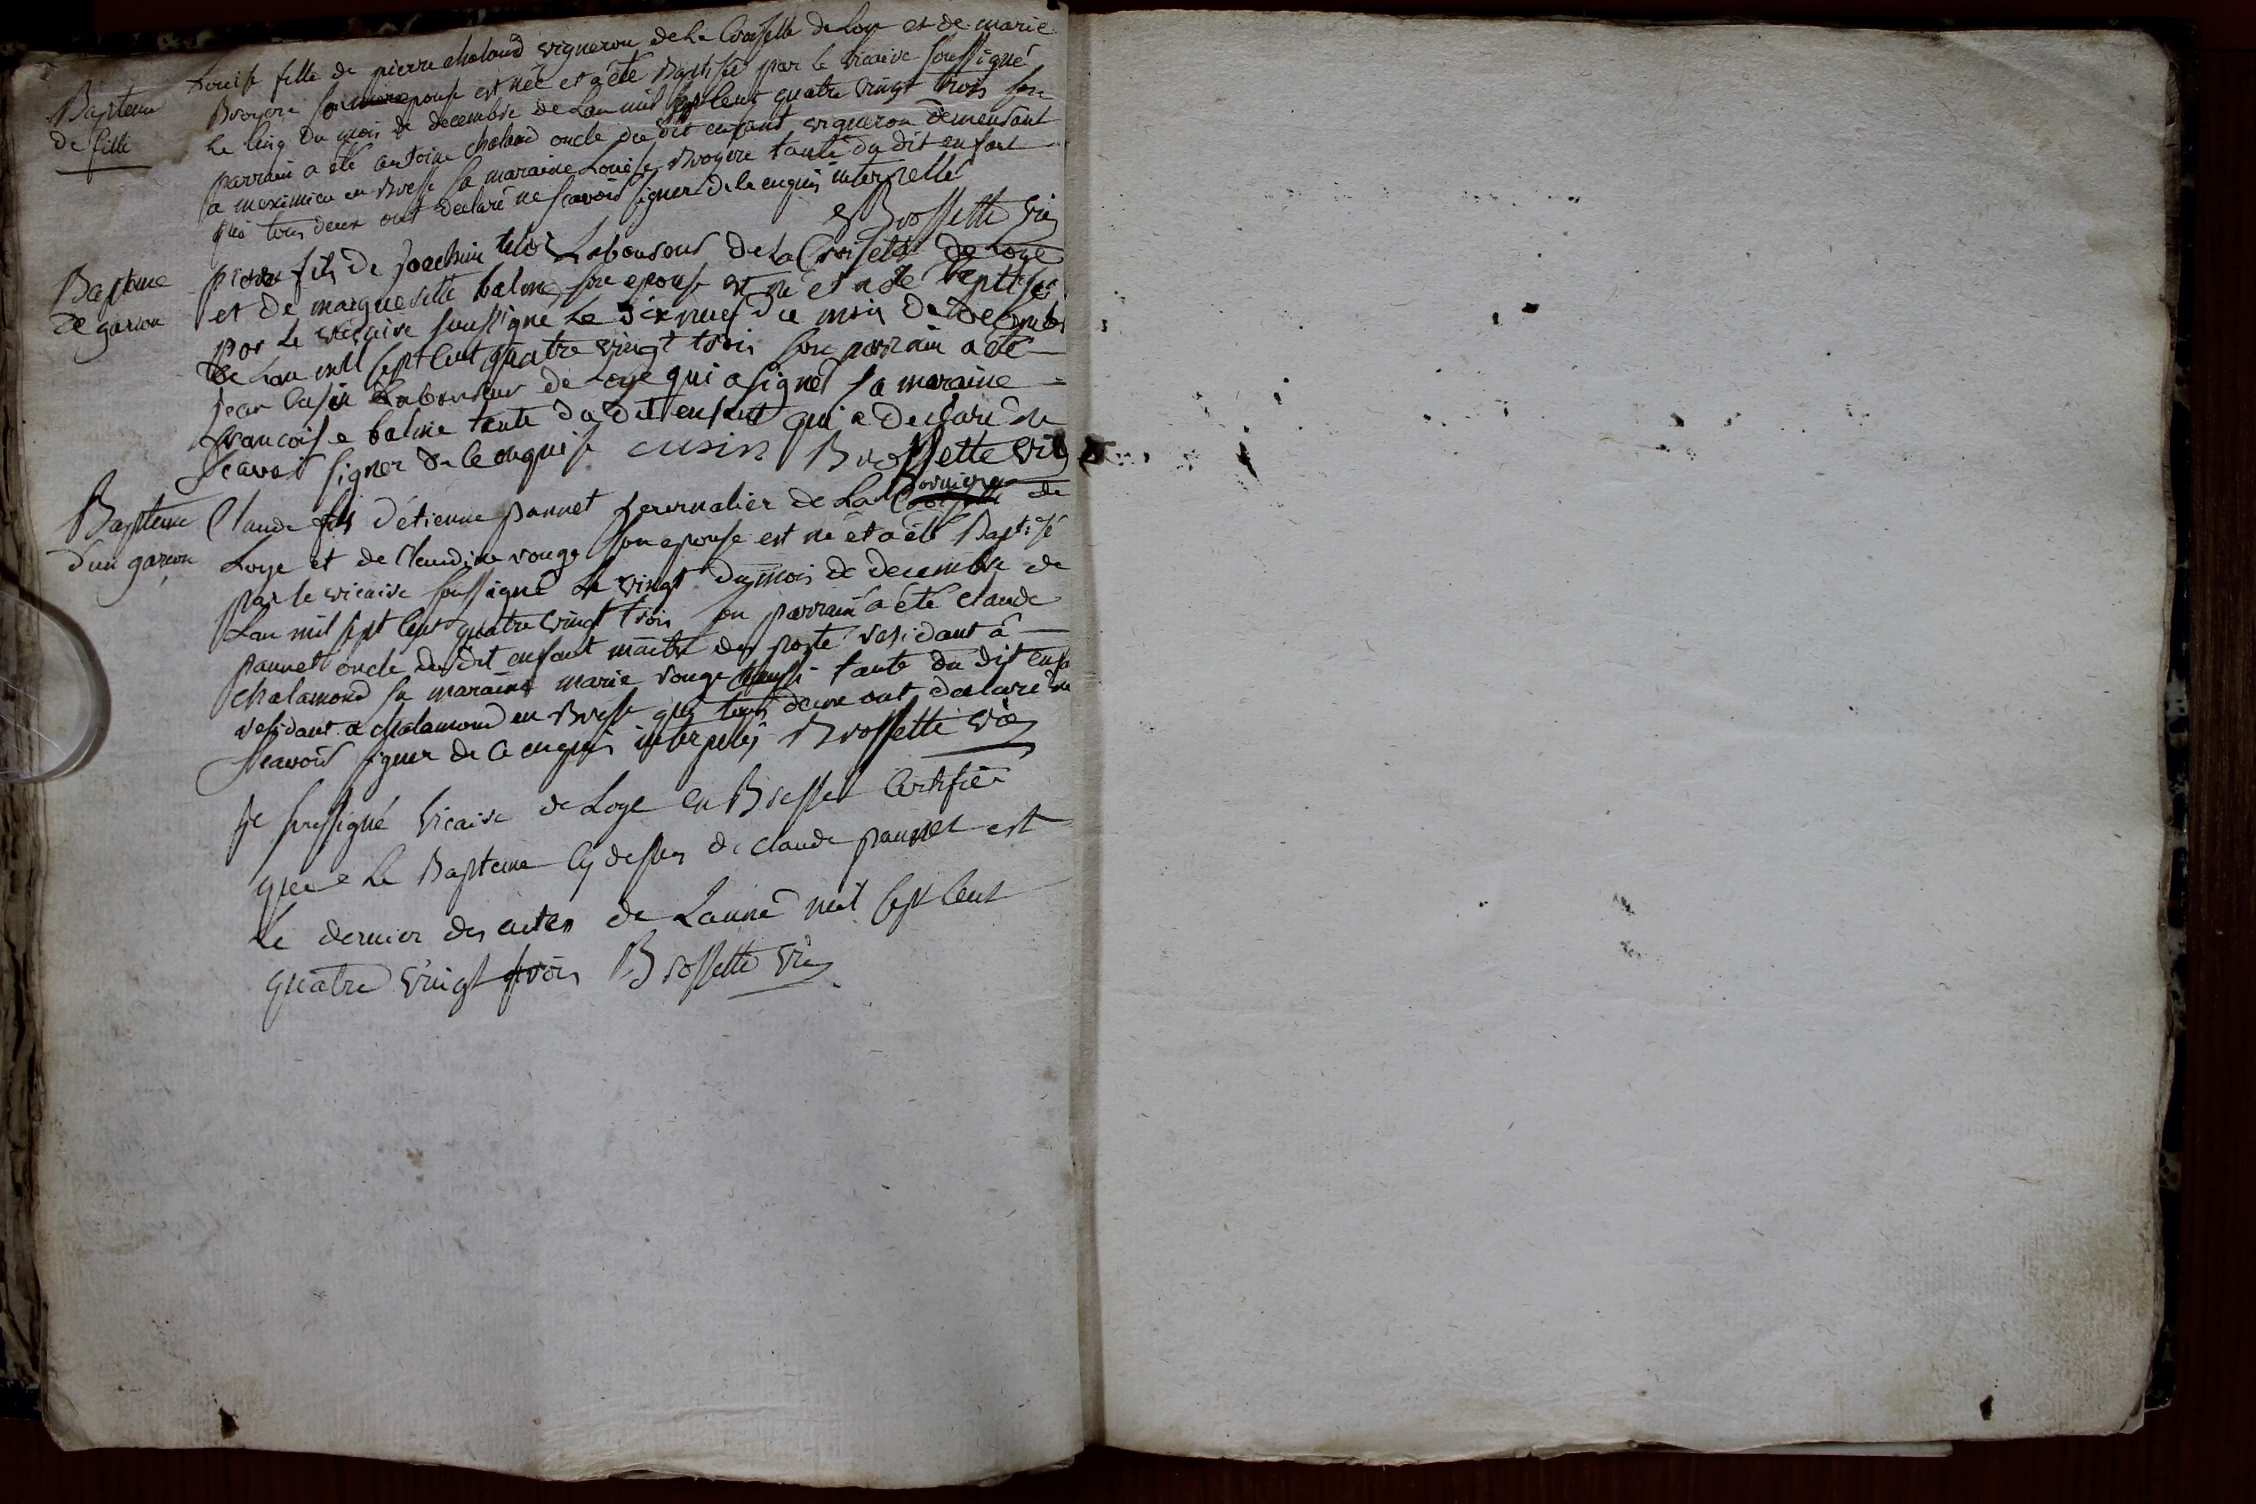 Bapteme
de fille
Louise fille de pierre chaland vigneron de la Croisette de Loye et de marie
Broyere son epouse est née et a été Baptisée par le vicaire soussigné
le cinq du mois de decembre de l'an mil sept cent quatre vingt trois son
parrain a été antoine chaland oncle du dit enfant vigneron demeurant
a meximieu en Bresse sa maraine Louise Broyere tante du dit enfant
qui tous deux ont declaré ne scavoir signer de ce enquis interpellé
Brossette vic
Bapteme
de garson
pierre fils de joachim Laboureur de La Croisette de Loye
et de marguerite balme son epouse est né et a été baptisé
par le vicaire soussigné le dix neuf du mois de decembre
de l'an mil sept cent quatre vingt trois son parrain a été
jean Cusin Laboureur de Loye qui a signé sa maraine
francoise balme tante du dit enfant qui a declaré ne
scavoir signer de ce enquise cusin Brossette vic
Bapteme
d'un garson
Claude fils d'etienne pannet journalier de La
de
Loye et de Claudine rouge son epouse est né et a été Baptisé
par le vicaire soussigné le vingt du mois de decembre de
l'an mil sept cent quatre vingt trois son parrain a été claude
pannet oncle du dit enfant maitre de poste residant a
chalamond sa maraine marie rouge aussi tante du dit enfa
residant a chalamond en Bresse qui tous deux ont declaré ne
scavoir signer de ce enquis interpelés Brossette vic
je soussigné vicaire de Loye en Bresse Certifie
que le Bapteme cy dessus de claude pannet est
le dernier des actes de L'année mil sept cent
quatre vingt trois Brossette vic